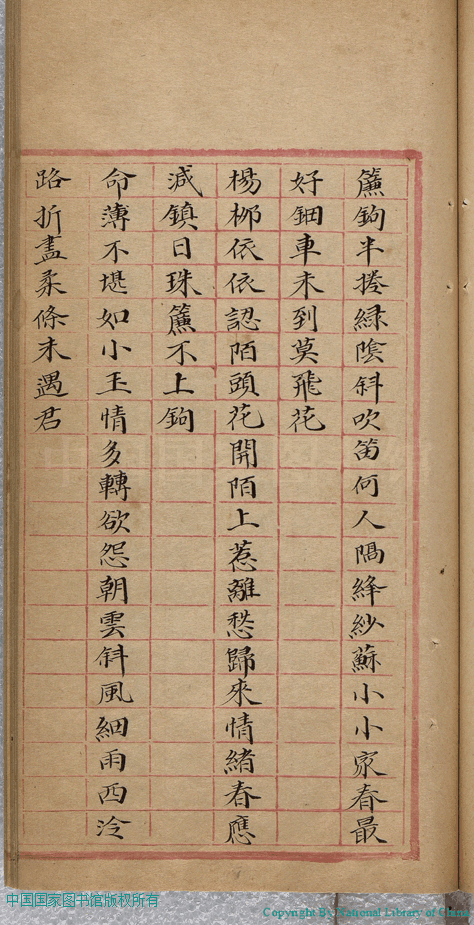 簾鉤半捲綠陰斜吹笛何人隔絳紗蘇小小家春最
好鈿車未到莫飛花
楊柳依依認陌頭花開陌上惹離愁歸來情緒春應
減鎮日珠簾不上鉤
命薄不堪如小玉情多轉欲怨朝雲斜風細雨西泠
路折盡柔條未遇君
中国国家图书馆版权所有
Copyright By National Library of China